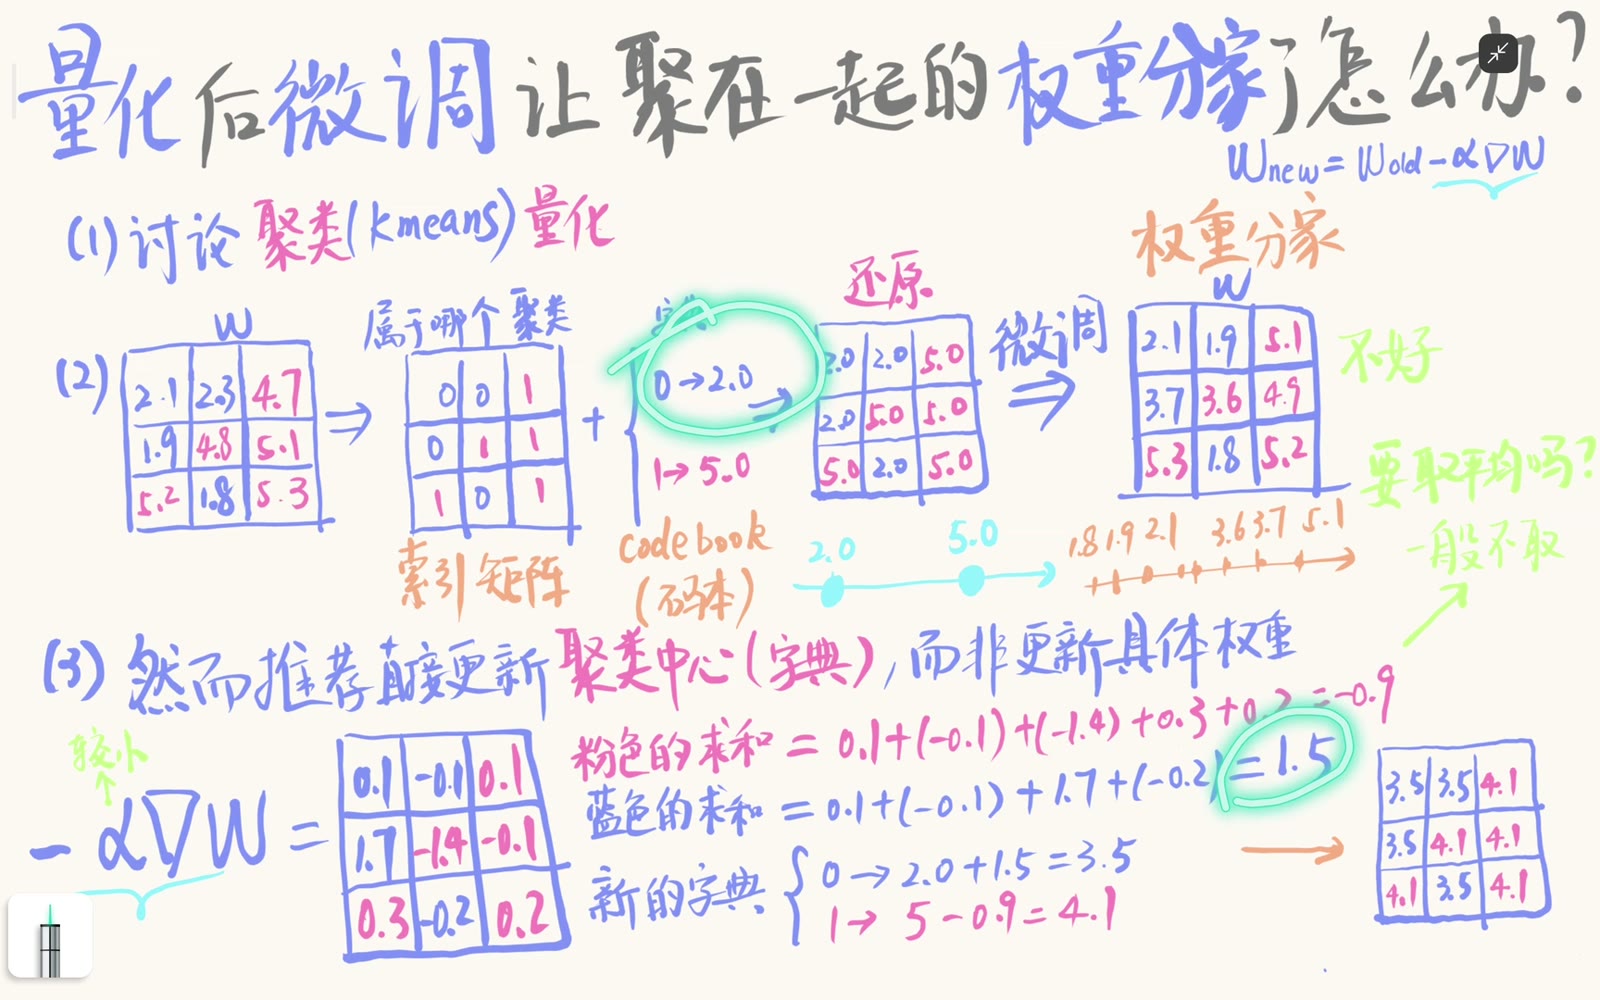 量化后微调让聚在一起的权重分家了怎么办?
Wnew = Wold - α∇W
(1) 讨论聚类(kmeans)量化
权重分家
(2)
W
2.1 2.3 4.7
1.9 4.8 5.1
5.2 1.8 5.3
⇒
属于哪个聚类
0 0 1
0 1 1
1 0 1
索引矩阵
+
字典
0→2.0
1→5.0
codebook
(码本)
→
还原
2.0 2.0 5.0
2.0 5.0 5.0
5.0 2.0 5.0
2.0 5.0
微调
⇒
W
2.1 1.9 5.1
3.7 3.6 4.9
5.3 1.8 5.2
1.8 1.9 2.1 3.6 3.7 5.1
不好
要取平均吗?
一般不取
(3) 然而推荐直接更新聚类中心(字典),而非更新具体权重
较小
↑
- α∇W =
0.1 -0.1 0.1
1.7 -1.4 -0.1
0.3 -0.2 0.2
粉色的求和 = 0.1+(-0.1)+(-1.4)+0.3+0.2=-0.9
蓝色的求和 = 0.1+(-0.1)+1.7+(-0.2)=1.5
新的字典
0→2.0+1.5=3.5
1→5-0.9=4.1
→
3.5 3.5 4.1
3.5 4.1 4.1
4.1 3.5 4.1